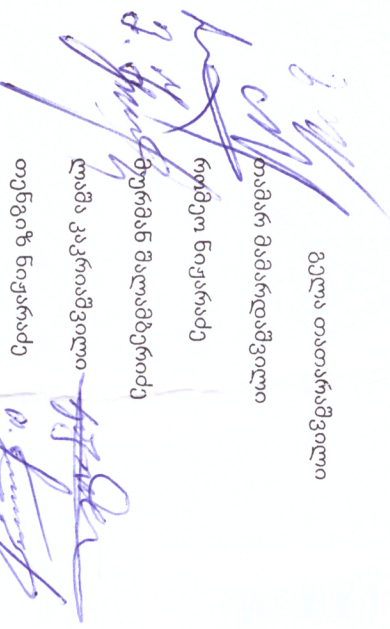 გელა თათარაშვილი
თამარ მამარდაშვილი
რომეო ნიჟარაძე
მურმან შალამბერიძე
ლაშა კაკრიაშვილი
თენგიზ ნიჟარაძე